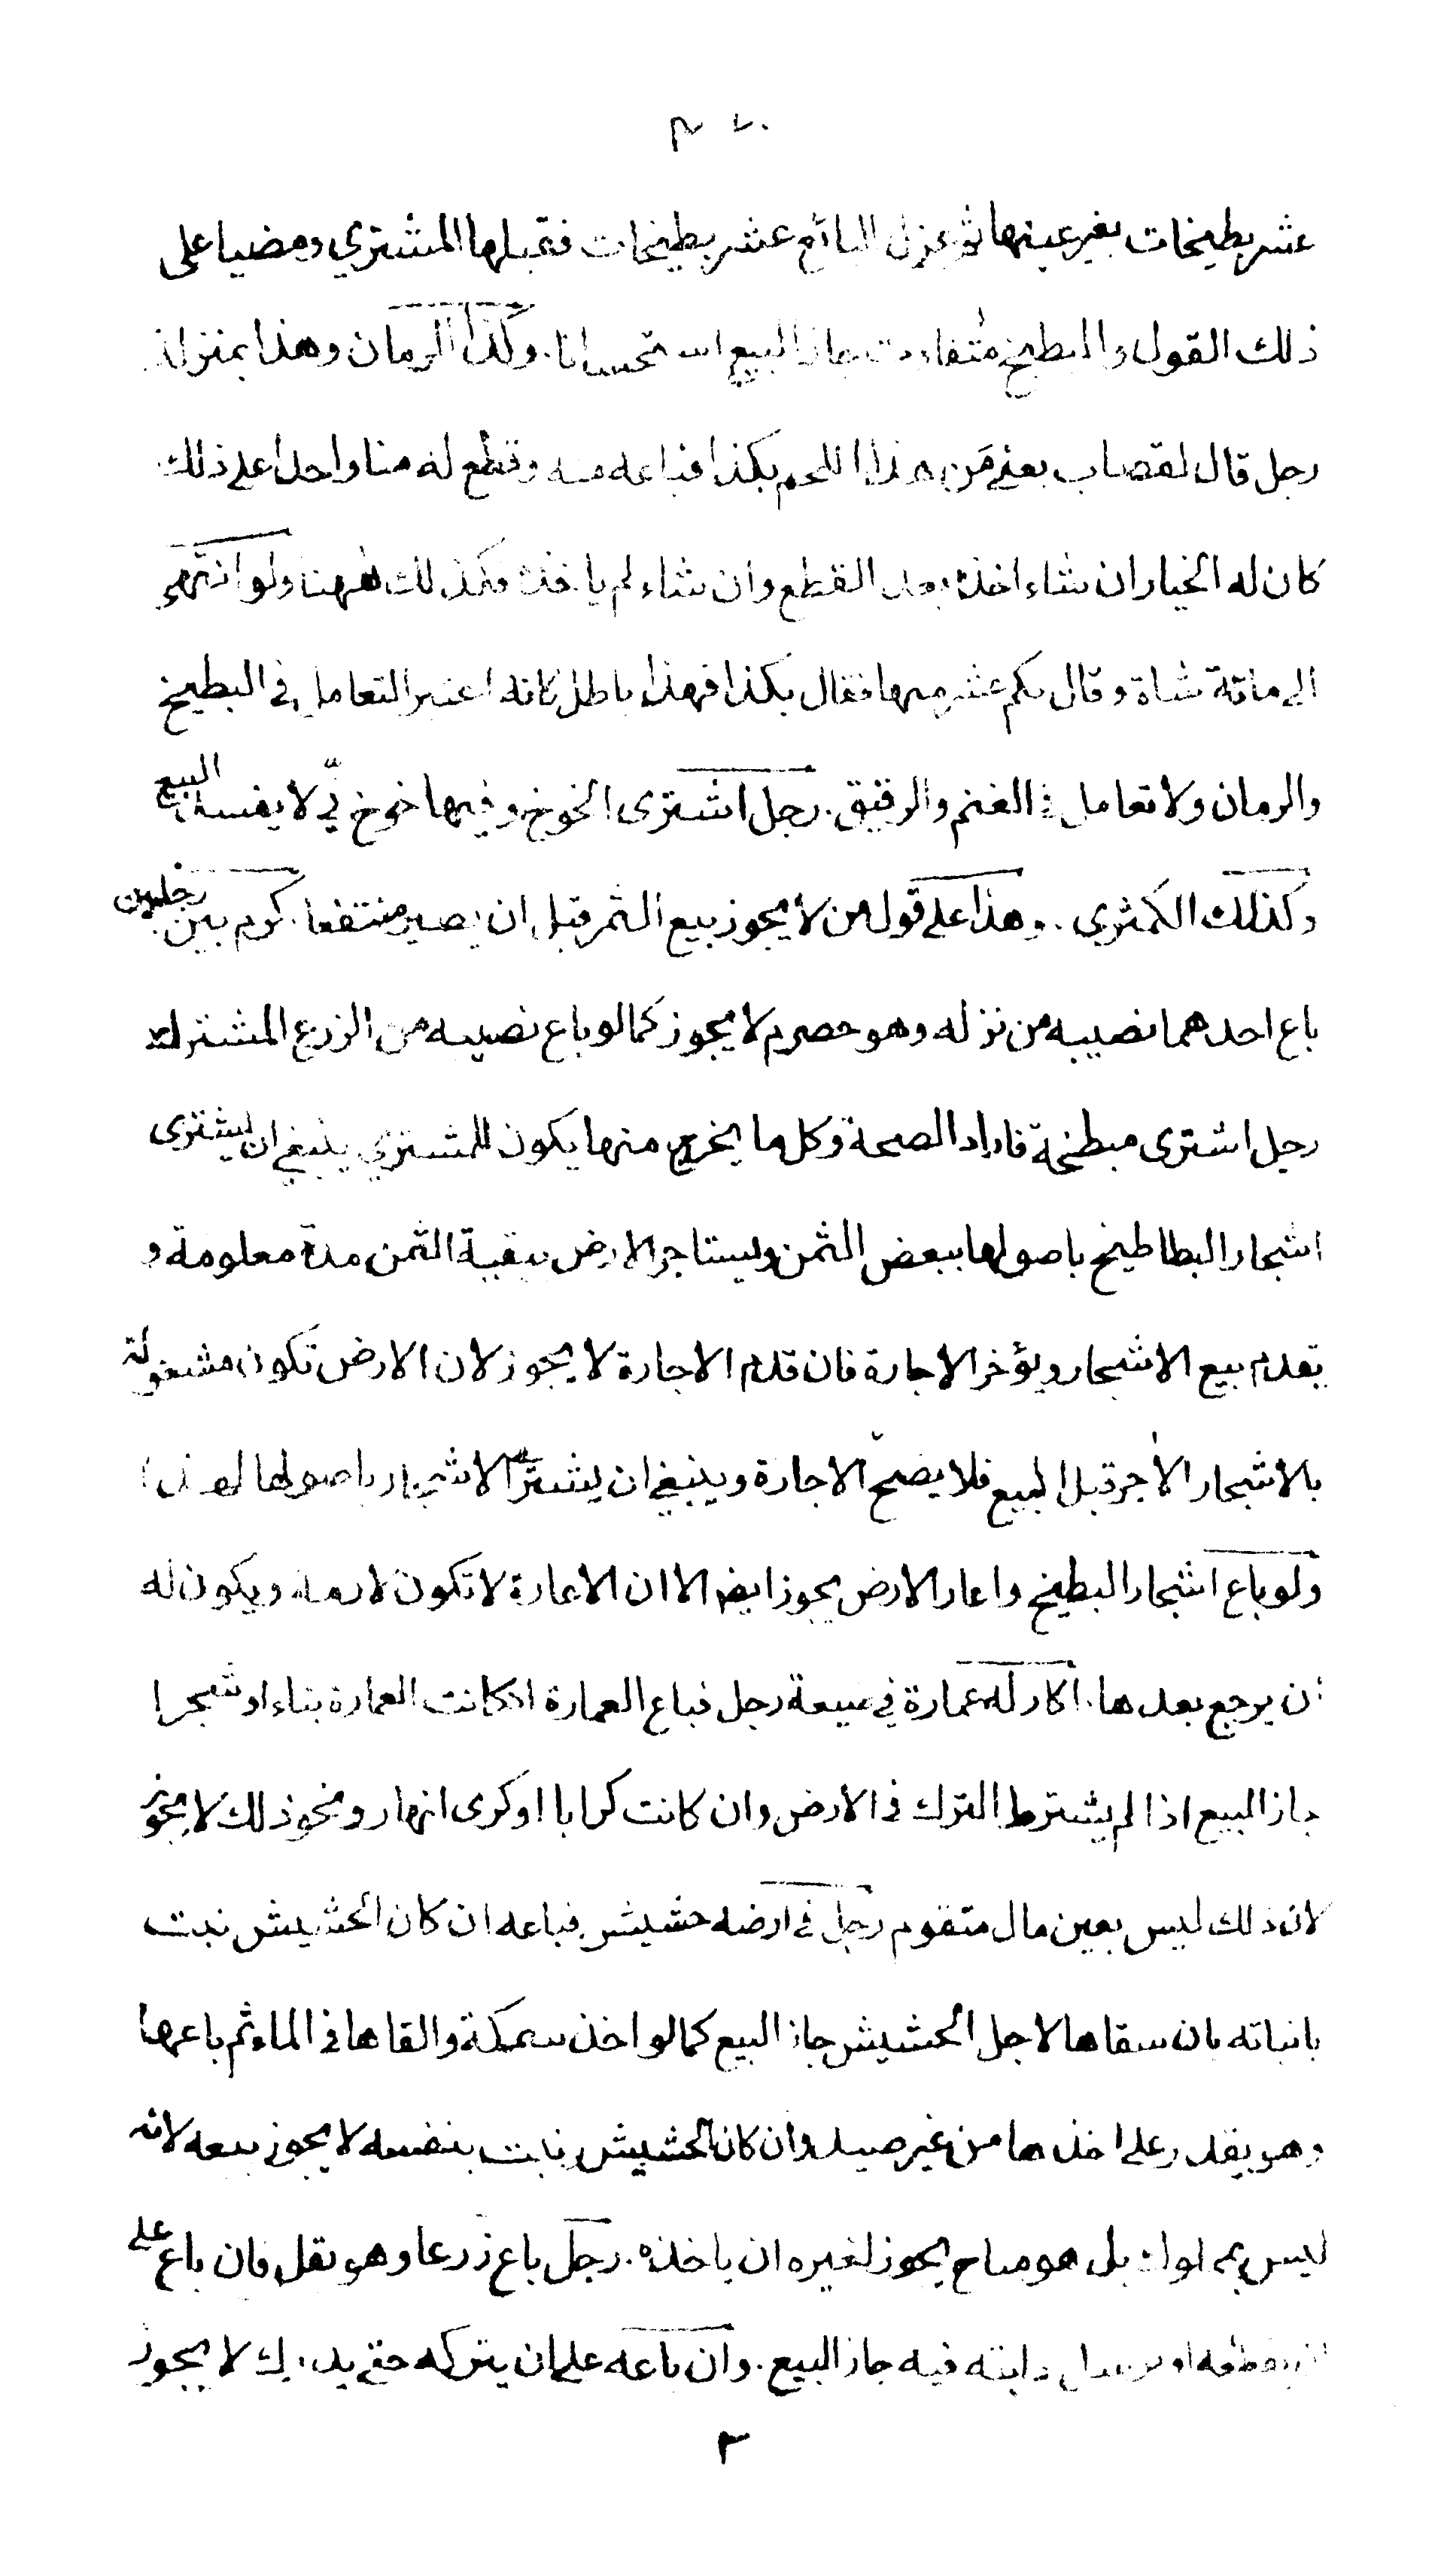 عشر بطيخات بغير عينها ثم عزل البائع عشر بطيخات فقبلها المشتري ومضيا على
ذلك القول والبطيخ متفاوت جاز البيع استحسانا. وكذا الرمان وهذا بمنزلة
رجل قال لقصاب بعني من هذا اللحم بكذا فباعه منه وقطع له منا واحدا على ذلك
كان له الخيار ان شاء اخذه بعد القطع وان شاء لم ياخذه فكذلك ههنا ولو انتهى
الى مائة شاة وقال بكم عشر منها فقال بكذا فهذا باطل كانه اعتبر التعامل في البطيخ
والرمان ولا تعامل في الغنم والرقيق. رجل اشترى الخوخ وفيها خوخ نيّ لا يفسد البيع
وكذلك الكمثرى. وهذا على قول من لا يجوز بيع الثمر قبل ان يصير منتفعا. كرم بين رجلين
باع احدهما نصيبه من نزله وهو حصرم لا يجوز كما لو باع نصيبه من الزرع المشترك
رجل اشترى مبطخة فاراد الصحة وكل ما يخرج منها يكون للمشتري ينبغي ان يشترى
اشجار البطاطيخ باصولها ببعض الثمن ويستاجر الارض ببقية الثمن مدة معلومة و
يقدم بيع الاشجار ويؤخر الاجارة فان قدم الاجارة لا يجوز لان الارض تكون مشغولة
بالاشجار الأجر قبل البيع فلا يصحّ الاجارة وينبغي ان يشترى الاشجار باصولها لهذا
ولو باع اشجار البطيخ واعار الارض يجوز ايضا الا ان الاعارة لا تكون لازمة ويكون له
ان يرجع بعدها. اكار له عمارة في ضيعة رجل فباع العمارة ان كانت العمارة بناء او شجرا
جاز البيع اذا لم يشترط الترك في الارض وان كانت كرابا او كرى انهار ونحو ذلك لا يجوز
لان ذلك ليس بعين مال متقوم رجل في ارضه حشيش فباعه ان كان الحشيش نبت
بانباته بان سقاها لاجل الحشيش جاز البيع كما لو اخذ سمكة والقاها في الماء ثم باعها
وهو يقدر على اخذها من غير صيد وان كان الحشيش نبت بنفسه لا يجوز بيعه لانه
ليس بمملوك بل هو مباح يجوز لغيره ان ياخذه. رجل باع زرعا وهو بقل فان باع على
ان يقطعه او يرسل دابته فيه جاز البيع. وان باعه على ان يتركه حتى يدرك لا يجوز